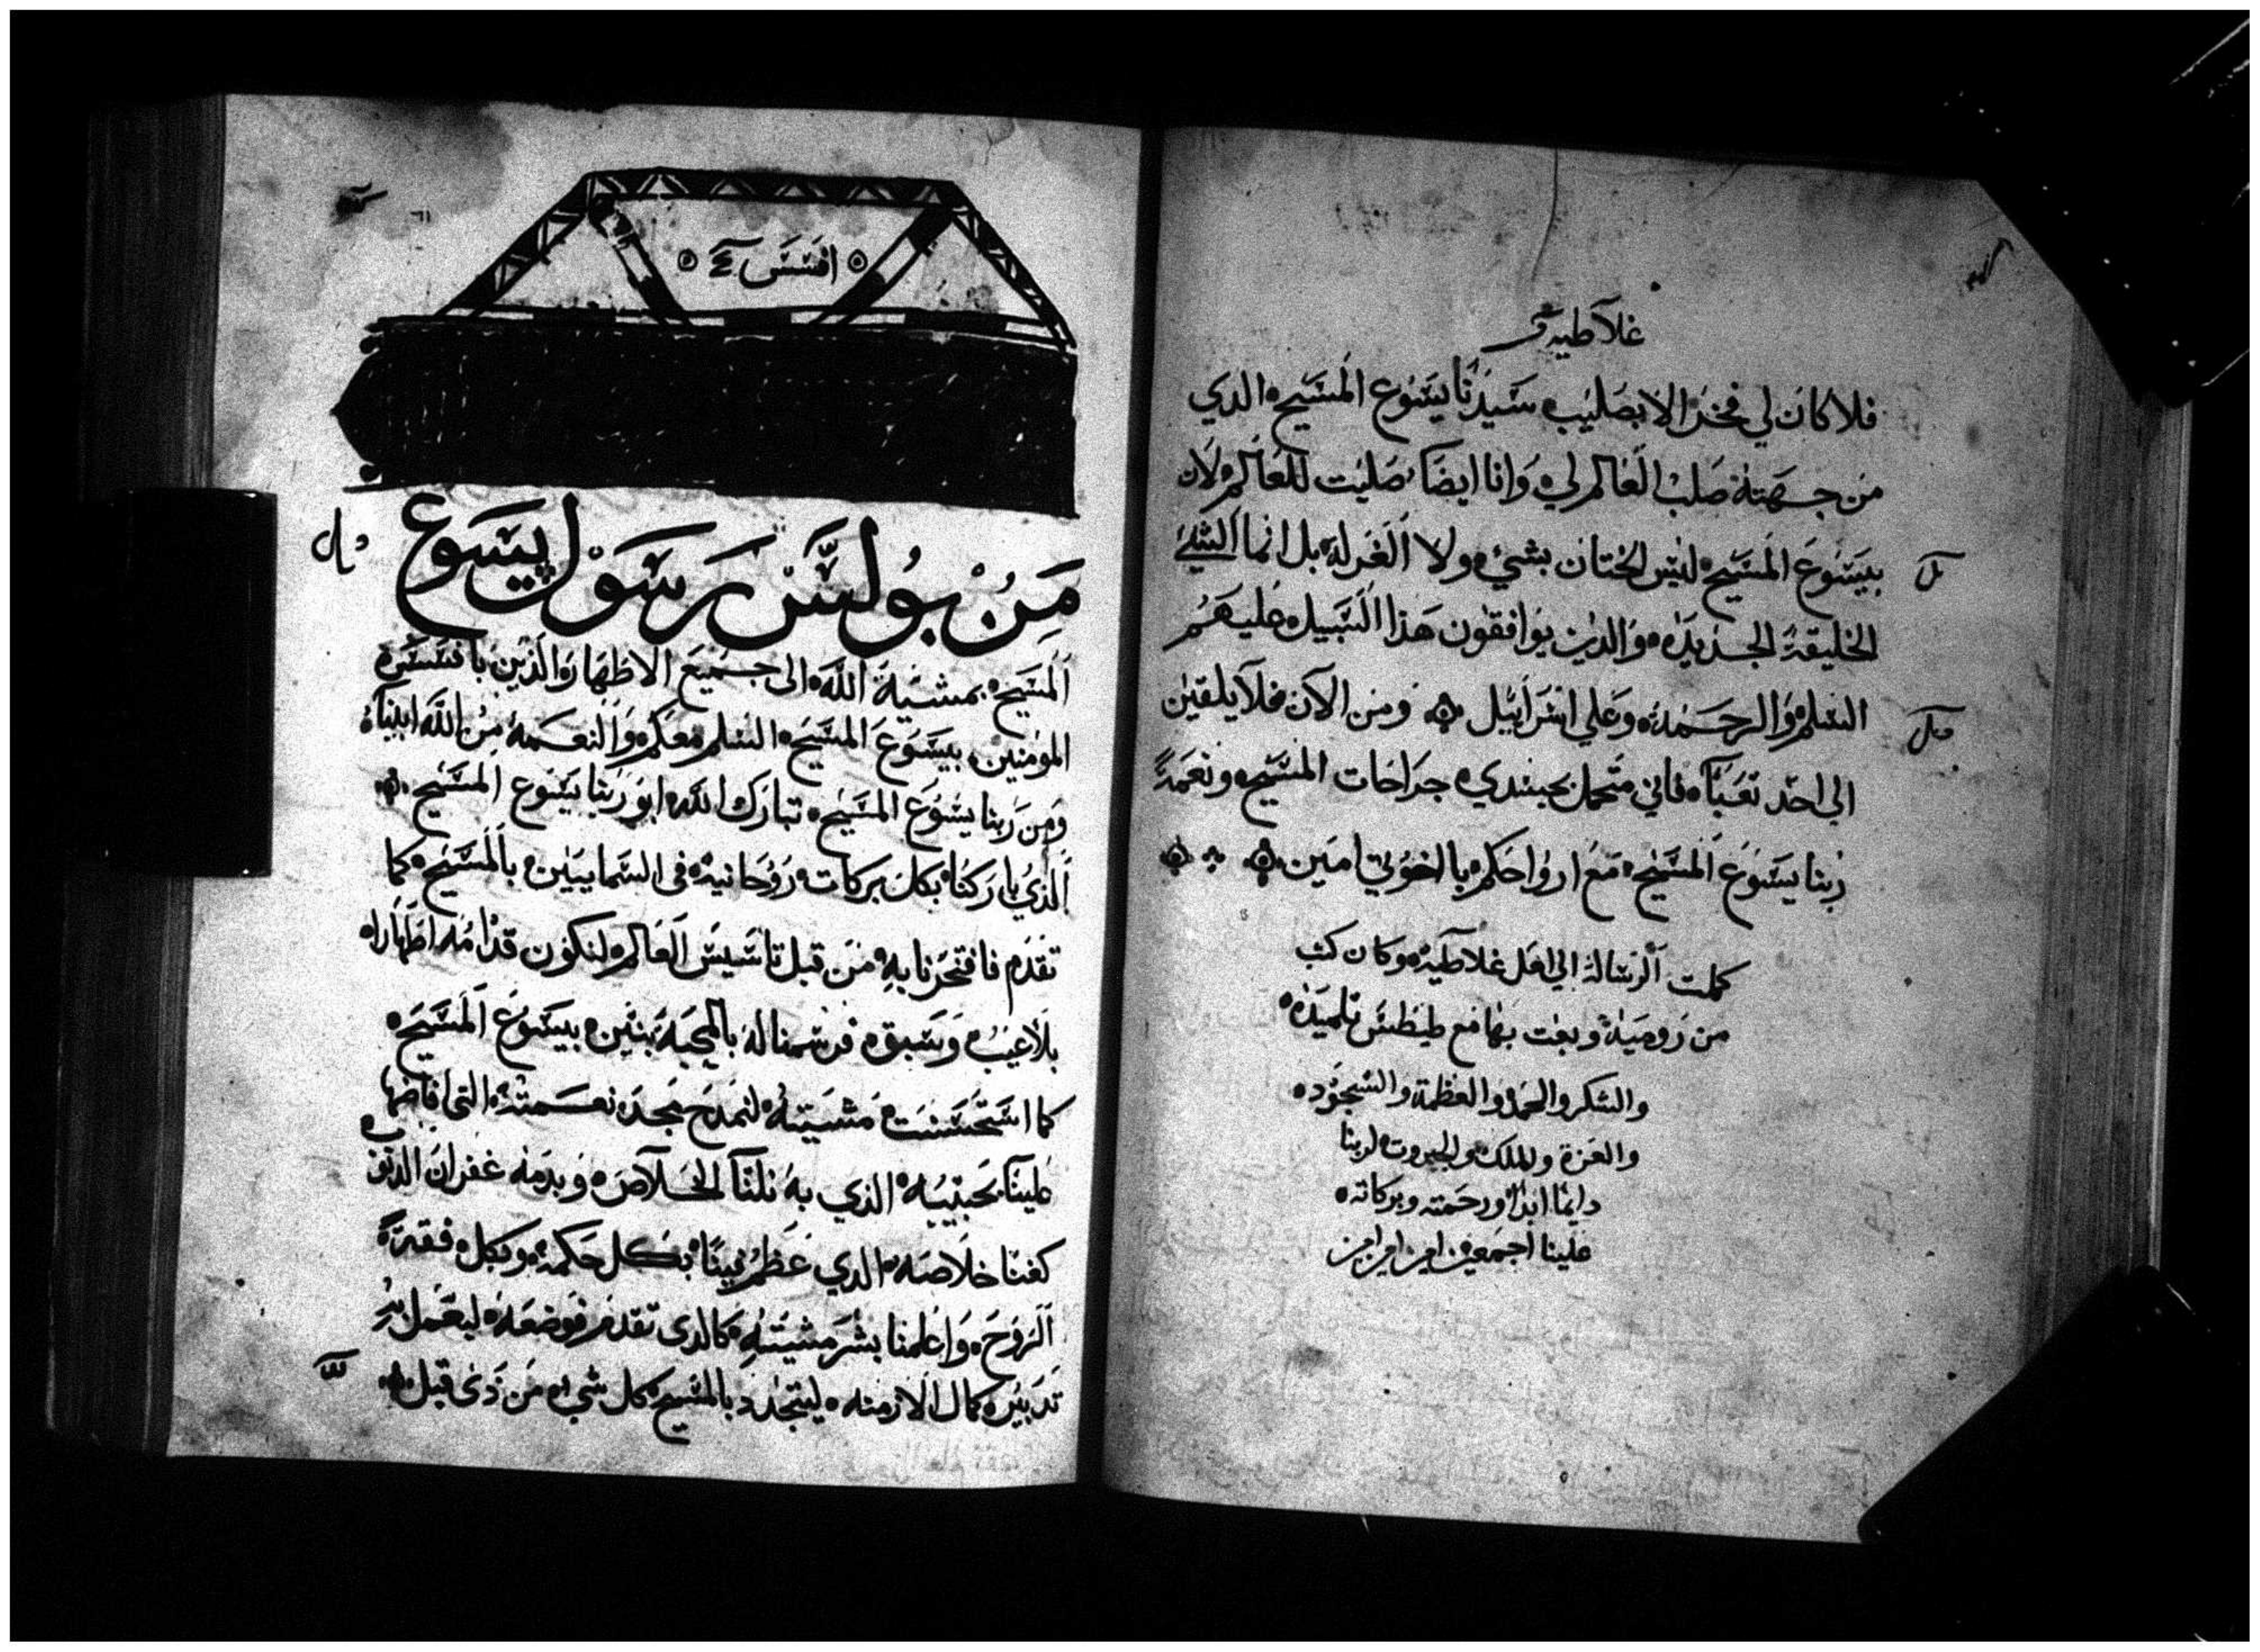 غلاطيه
فلا كان لي فخر الا بصليب سيدنا يسوع المسيح الدي
من جهته صلب العالم لي وانا ايضا صليت للعالم لان
بيسوع المسيح ليس الختان بشي ولا الغرله بل انما الشي
الخليقة الجديده والدين يوافقون هذا السبيل عليهم
السلم والرحمه وعلي اسرائيل ومن الآن فلا يلقين
الي احد تعبا فاني متحمل بجسدي جراحات المسيح ونعمة
ربنا يسوع المسيح مع ارواحكم يا اخوتي امين
كملت الرساله الي اهل غلاطية وكان كتب
من رومية وبعت بها مع طيطس تلميده
والشكر والحمد والعظمة والسجود
والعزة والملك والجبروت لربنا
دايما ابدا ورحمته وبركاته
علينا اجمعين امين امين امين
افسس
من بولس رسول يسوع
المسيح بمشية الله الى جميع الاطهار والذين بافسس
المومنين بيسوع المسيح السلم معكم والنعمة من الله ابينا
ومن ربنا يسوع المسيح تبارك الله ابو ربنا يسوع المسيح
الذي باركنا بكل بركات روحانية في السماييين بالمسيح كما
تقدم فافتخرنا به من قبل تاسيس العالم لنكون قدامه اطهارا
بلا عيب وسبق فرسمنا له بالمحبة بنين بيسوع المسيح
كما استحسنت مشيته لنمدح مجد نعمته التي افاضها
علينا بحبيبه الذي به نلنا الخلاص وبدمه غفران الدنوب
كغنا خلاصه الدي عظم فينا بكل حكمة وبكل فقه
الروح واعلمنا بسر مشيته كالدى تقدم فوضعه ليعمل به
تدبير كمال الازمنه ليتجدد بالمسيح كل شي من دى قبل